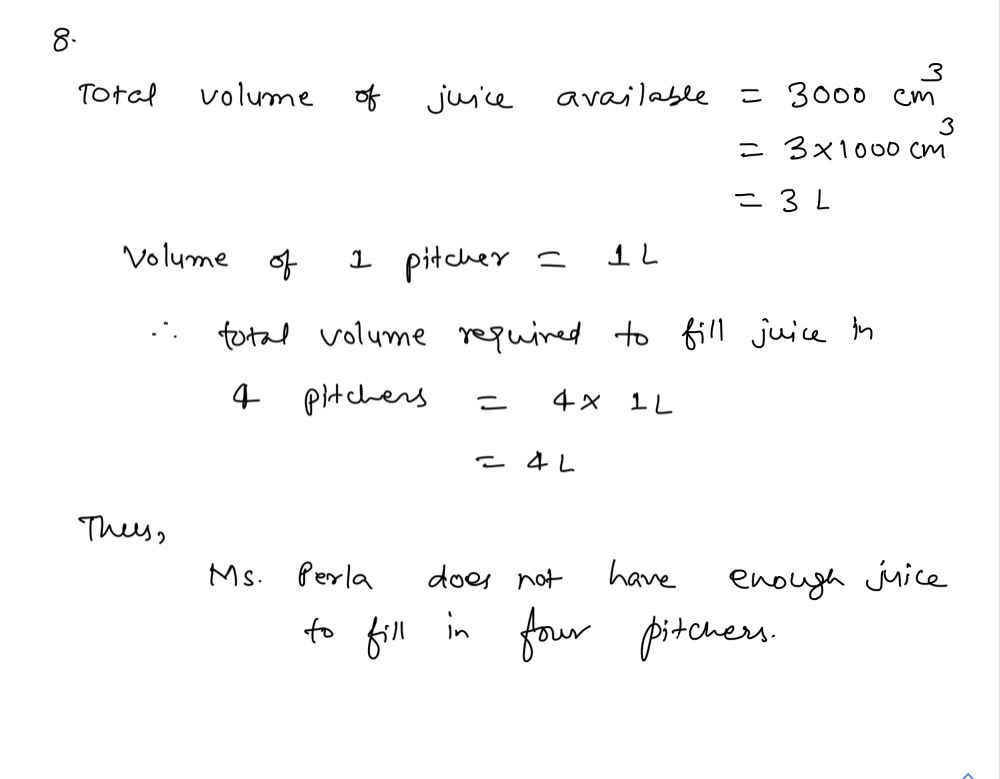 8.
Total volume of juice available = 3000 cm³
= 3×1000 cm³
= 3 L
Volume of 1 pitcher = 1 L
∴ total volume required to fill juice in
4 pitchers = 4× 1L
= 4 L
Thus,
Ms. Perla does not have enough juice
to fill in four pitchers.